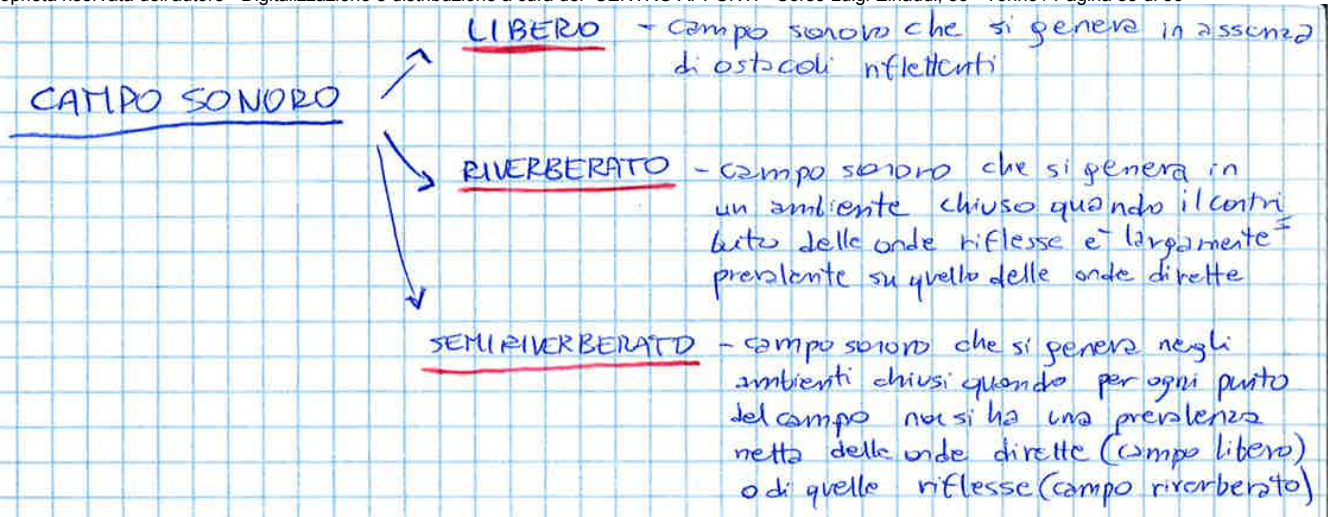 LIBERO - campo sonoro che si genera in assenza
di ostacoli riflettenti
CAMPO SONORO
RIVERBERATO - campo sonoro che si genera in
un ambiente chiuso quando il contri
buto delle onde riflesse è largamente
prevalente su quello delle onde dirette
SEMIRIVERBERATO - campo sonoro che si genera negli
ambienti chiusi quando per ogni punto
del campo non si ha una prevalenza
netta delle onde dirette (campo libero)
o di quelle riflesse (campo riverberato)